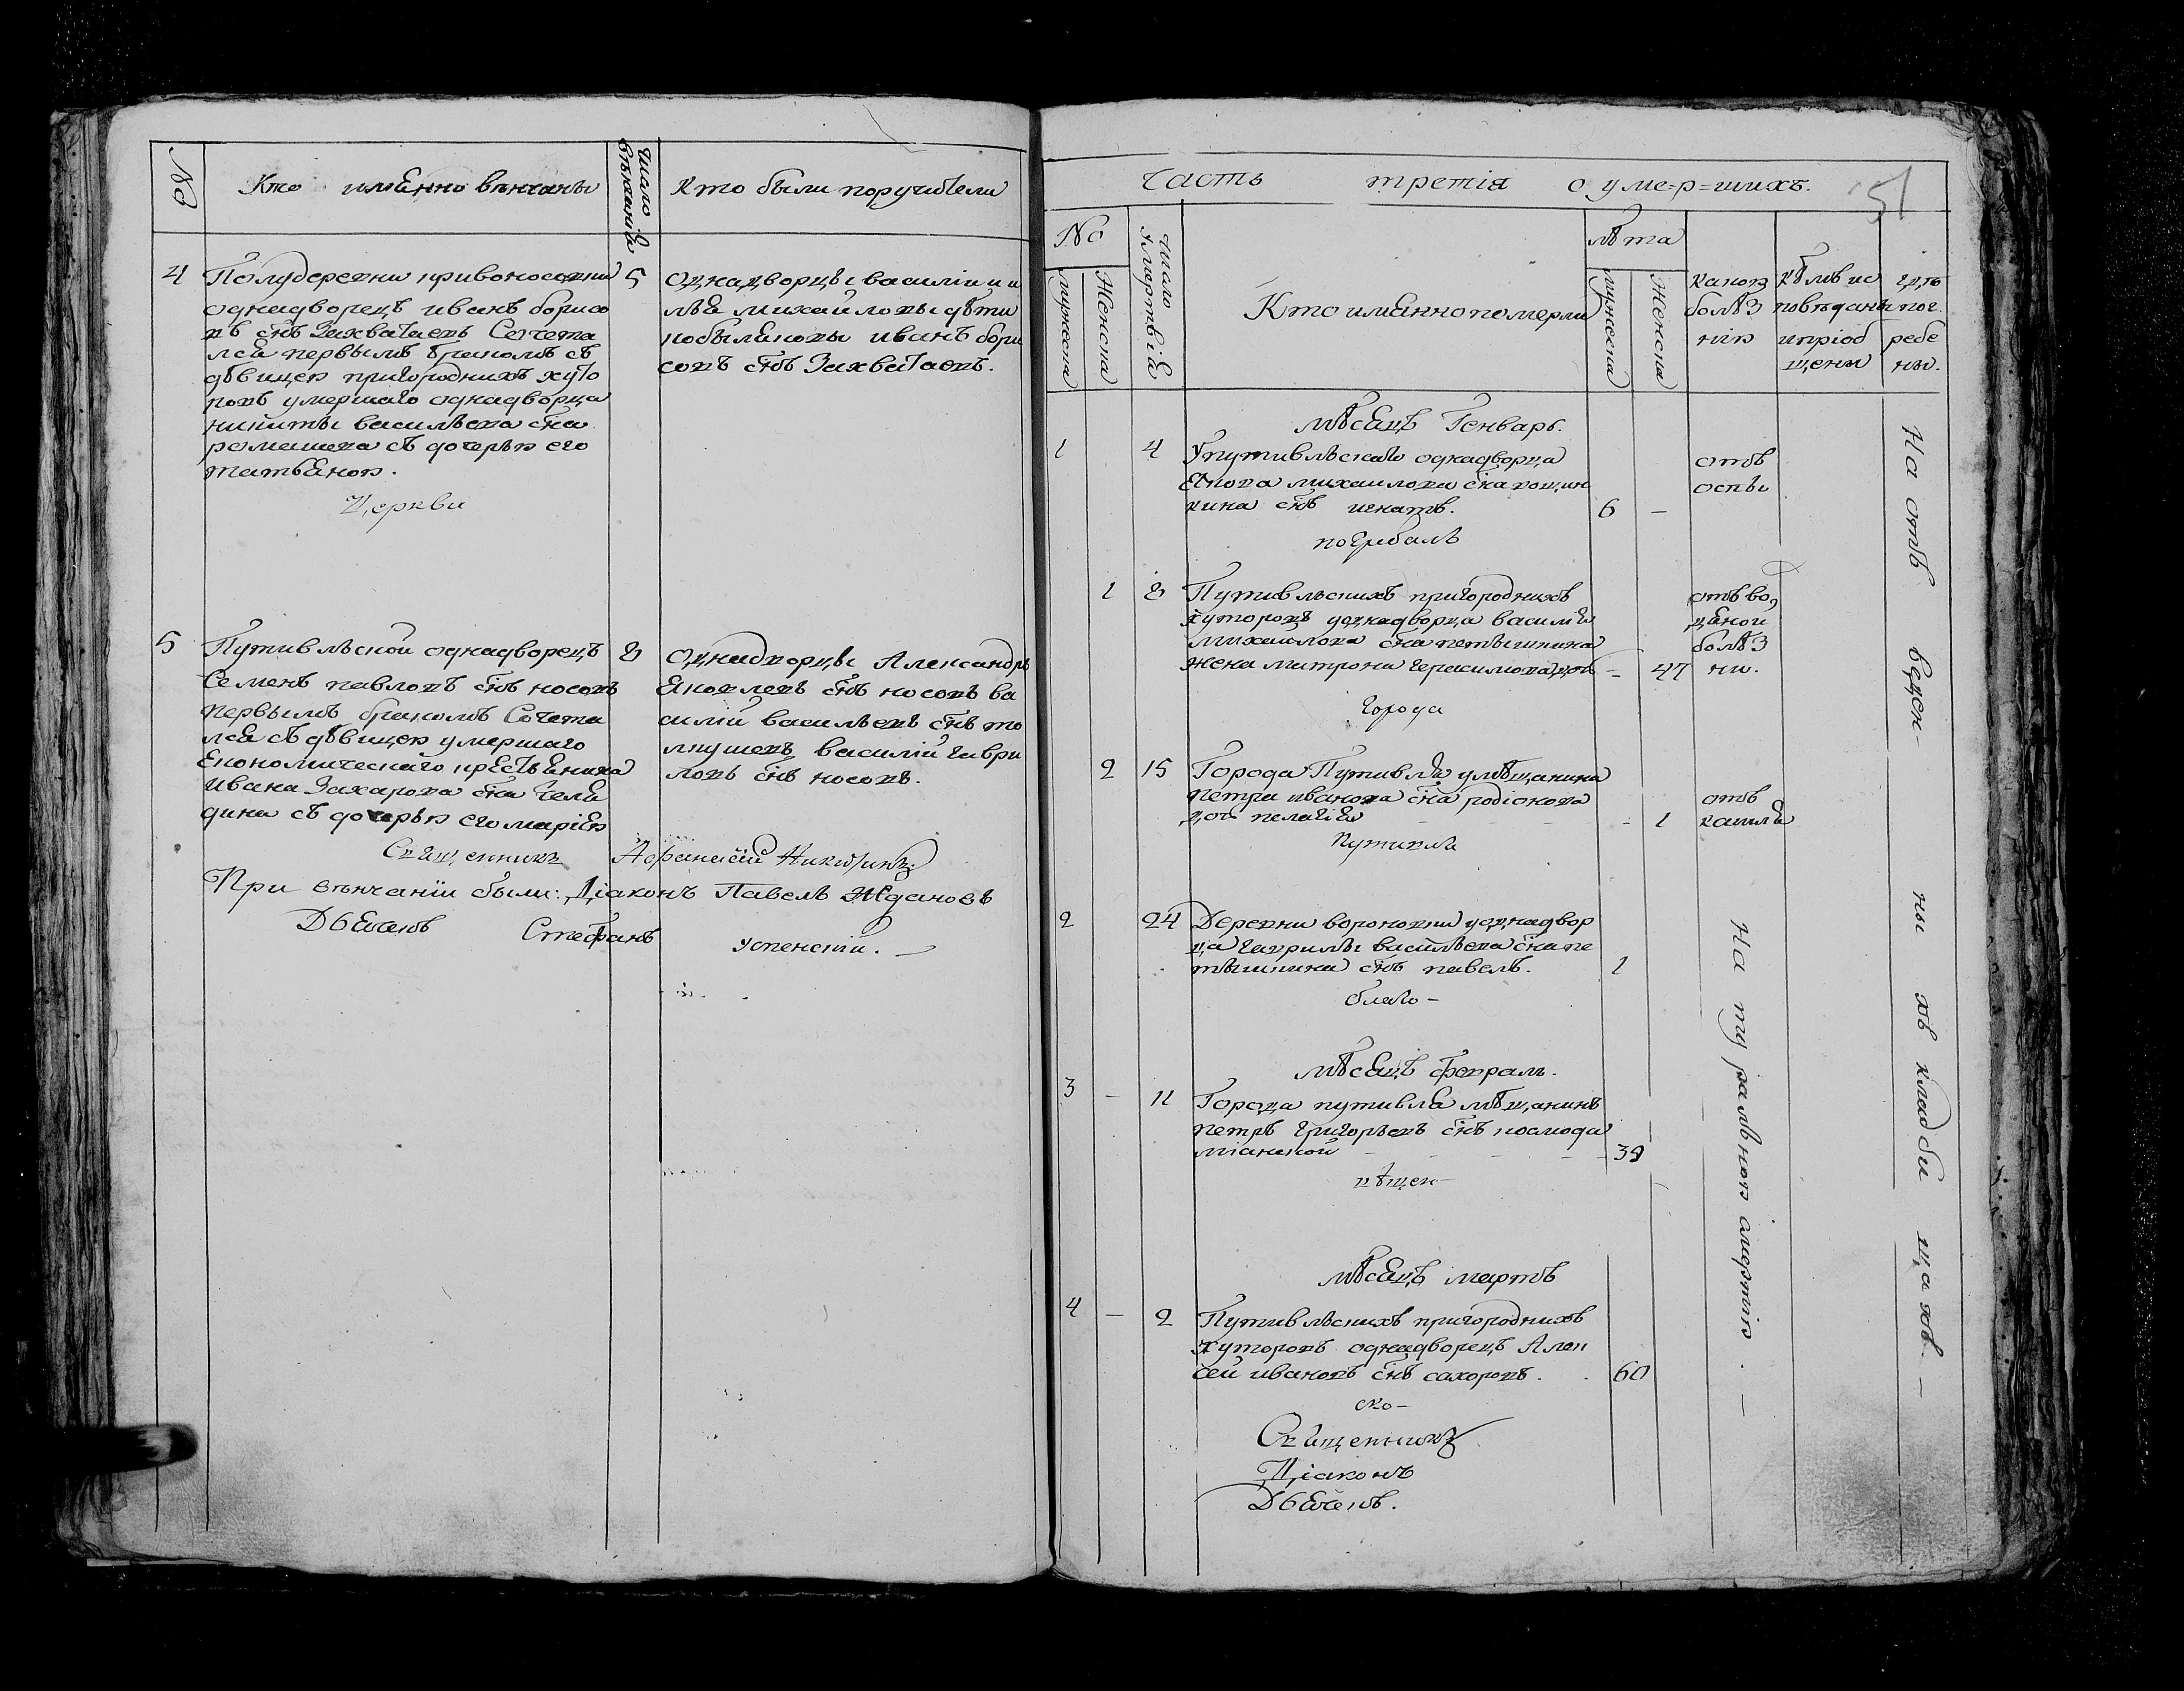 №
Кто имянно венчаны
число венчанiя
Кто были поручители
4
Полудеревни кривоносовки
однадворецъ иванъ борисо
въ снъ Захватаевъ Сочета
лся первымъ бракомъ съ
дѣвицею пригородныхъ хуто
ровъ умершаго однадворца
никиты васильева сна
ромашева съ дочерью его
татьяною.
Церкви
5
однадворцы василiи и и
лья михайловы дѣти
кобыляковы иванъ бори
совъ снъ Захватаевъ.
5
Путивльской однадворецъ
Семенъ павловъ снъ носовъ
первымъ бракомъ Сочета
лся съ дѣвицею умершаго
Економическаго крестьянина
ивана Захарова сна
дина съ дочерью его марiею
8
Однадворцы Александръ
яковлевъ снъ носовъ ва
силiй васильевъ снъ то
лпушевъ василiй гаври
ловъ снъ носовъ.
Священникъ Афанасiй
При венчанiи были: Дiаконъ Павелъ Ждановъ
Дьячекъ Стефанъ Успенскiй.
Часть третiя о умершихъ.
51
№
мужеска
Женска
число умертвiя
Кто имянно померли
лѣта
мужеска
Женска
какою
болѣз
нiю
кѣмъ ис
повѣданы
и прiоб
щены
гдѣ
пог
ребе
ны.
мѣсяцъ Генварь.
1
4
У путивльскаго однадворца
якова михаилова сна
кина снъ игнатъ.
6
-
отъ
оспы
погребалъ
1
8
Путивльскихъ пригородныхъ
хуторовъ у однадворца василiя
михаилова сна петышкина
жена матрона герасимова дочь
-
47
отъ во,
дяной
болѣз
ни.
города
2
15
Города Путивля у мѣщанина
петра иванова сна родiонова
дочь пелагiя
-
1
отъ
кашля
Путивля
2
24
Деревни вороновки у однадвор
ца гаврилы васильева сна пе
тышкина снъ павелъ.
1
благо-
мѣсяцъ февраль.
3
-
11
Города путивля мѣщанинъ
петръ григорьевъ снъ космоде
мiанской
39
вѣщен-
мѣсяцъ мартъ
4
-
2
Путивльскихъ пригородныхъ
хуторовъ однадворецъ Алек
сей ивановъ снъ сахоровъ.
60
ско-
Священникъ
Дiаконъ
Дьячекъ.
На туральною смертiю. -
На отъ веден ны хъ кладби ща хъ -